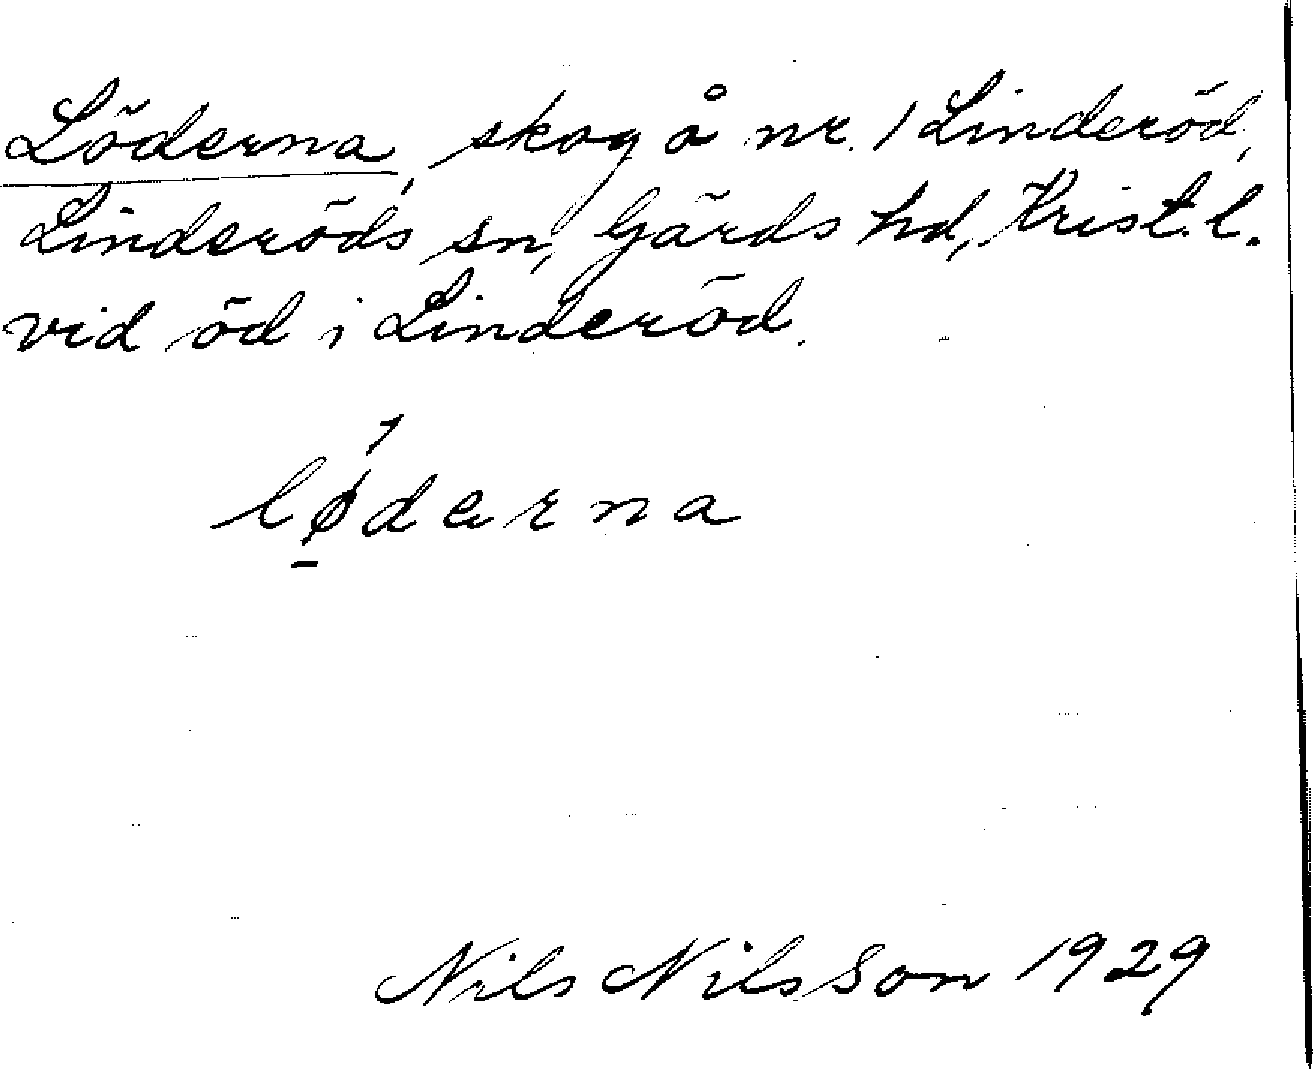 Löderna, skog å nr. 1 Linderöd,
Linderöds sn, Gärds hd, Krist. l.
vid öd i Linderöd.
lǿ̱derna
Nils Nilsson 1929